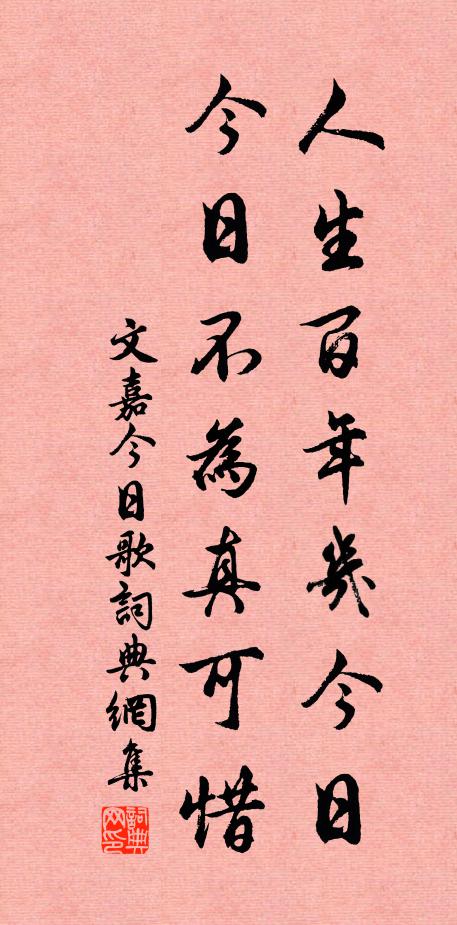 人生百年幾今日
今日不為真可惜
文嘉今日歌詞典網集
詞典網印